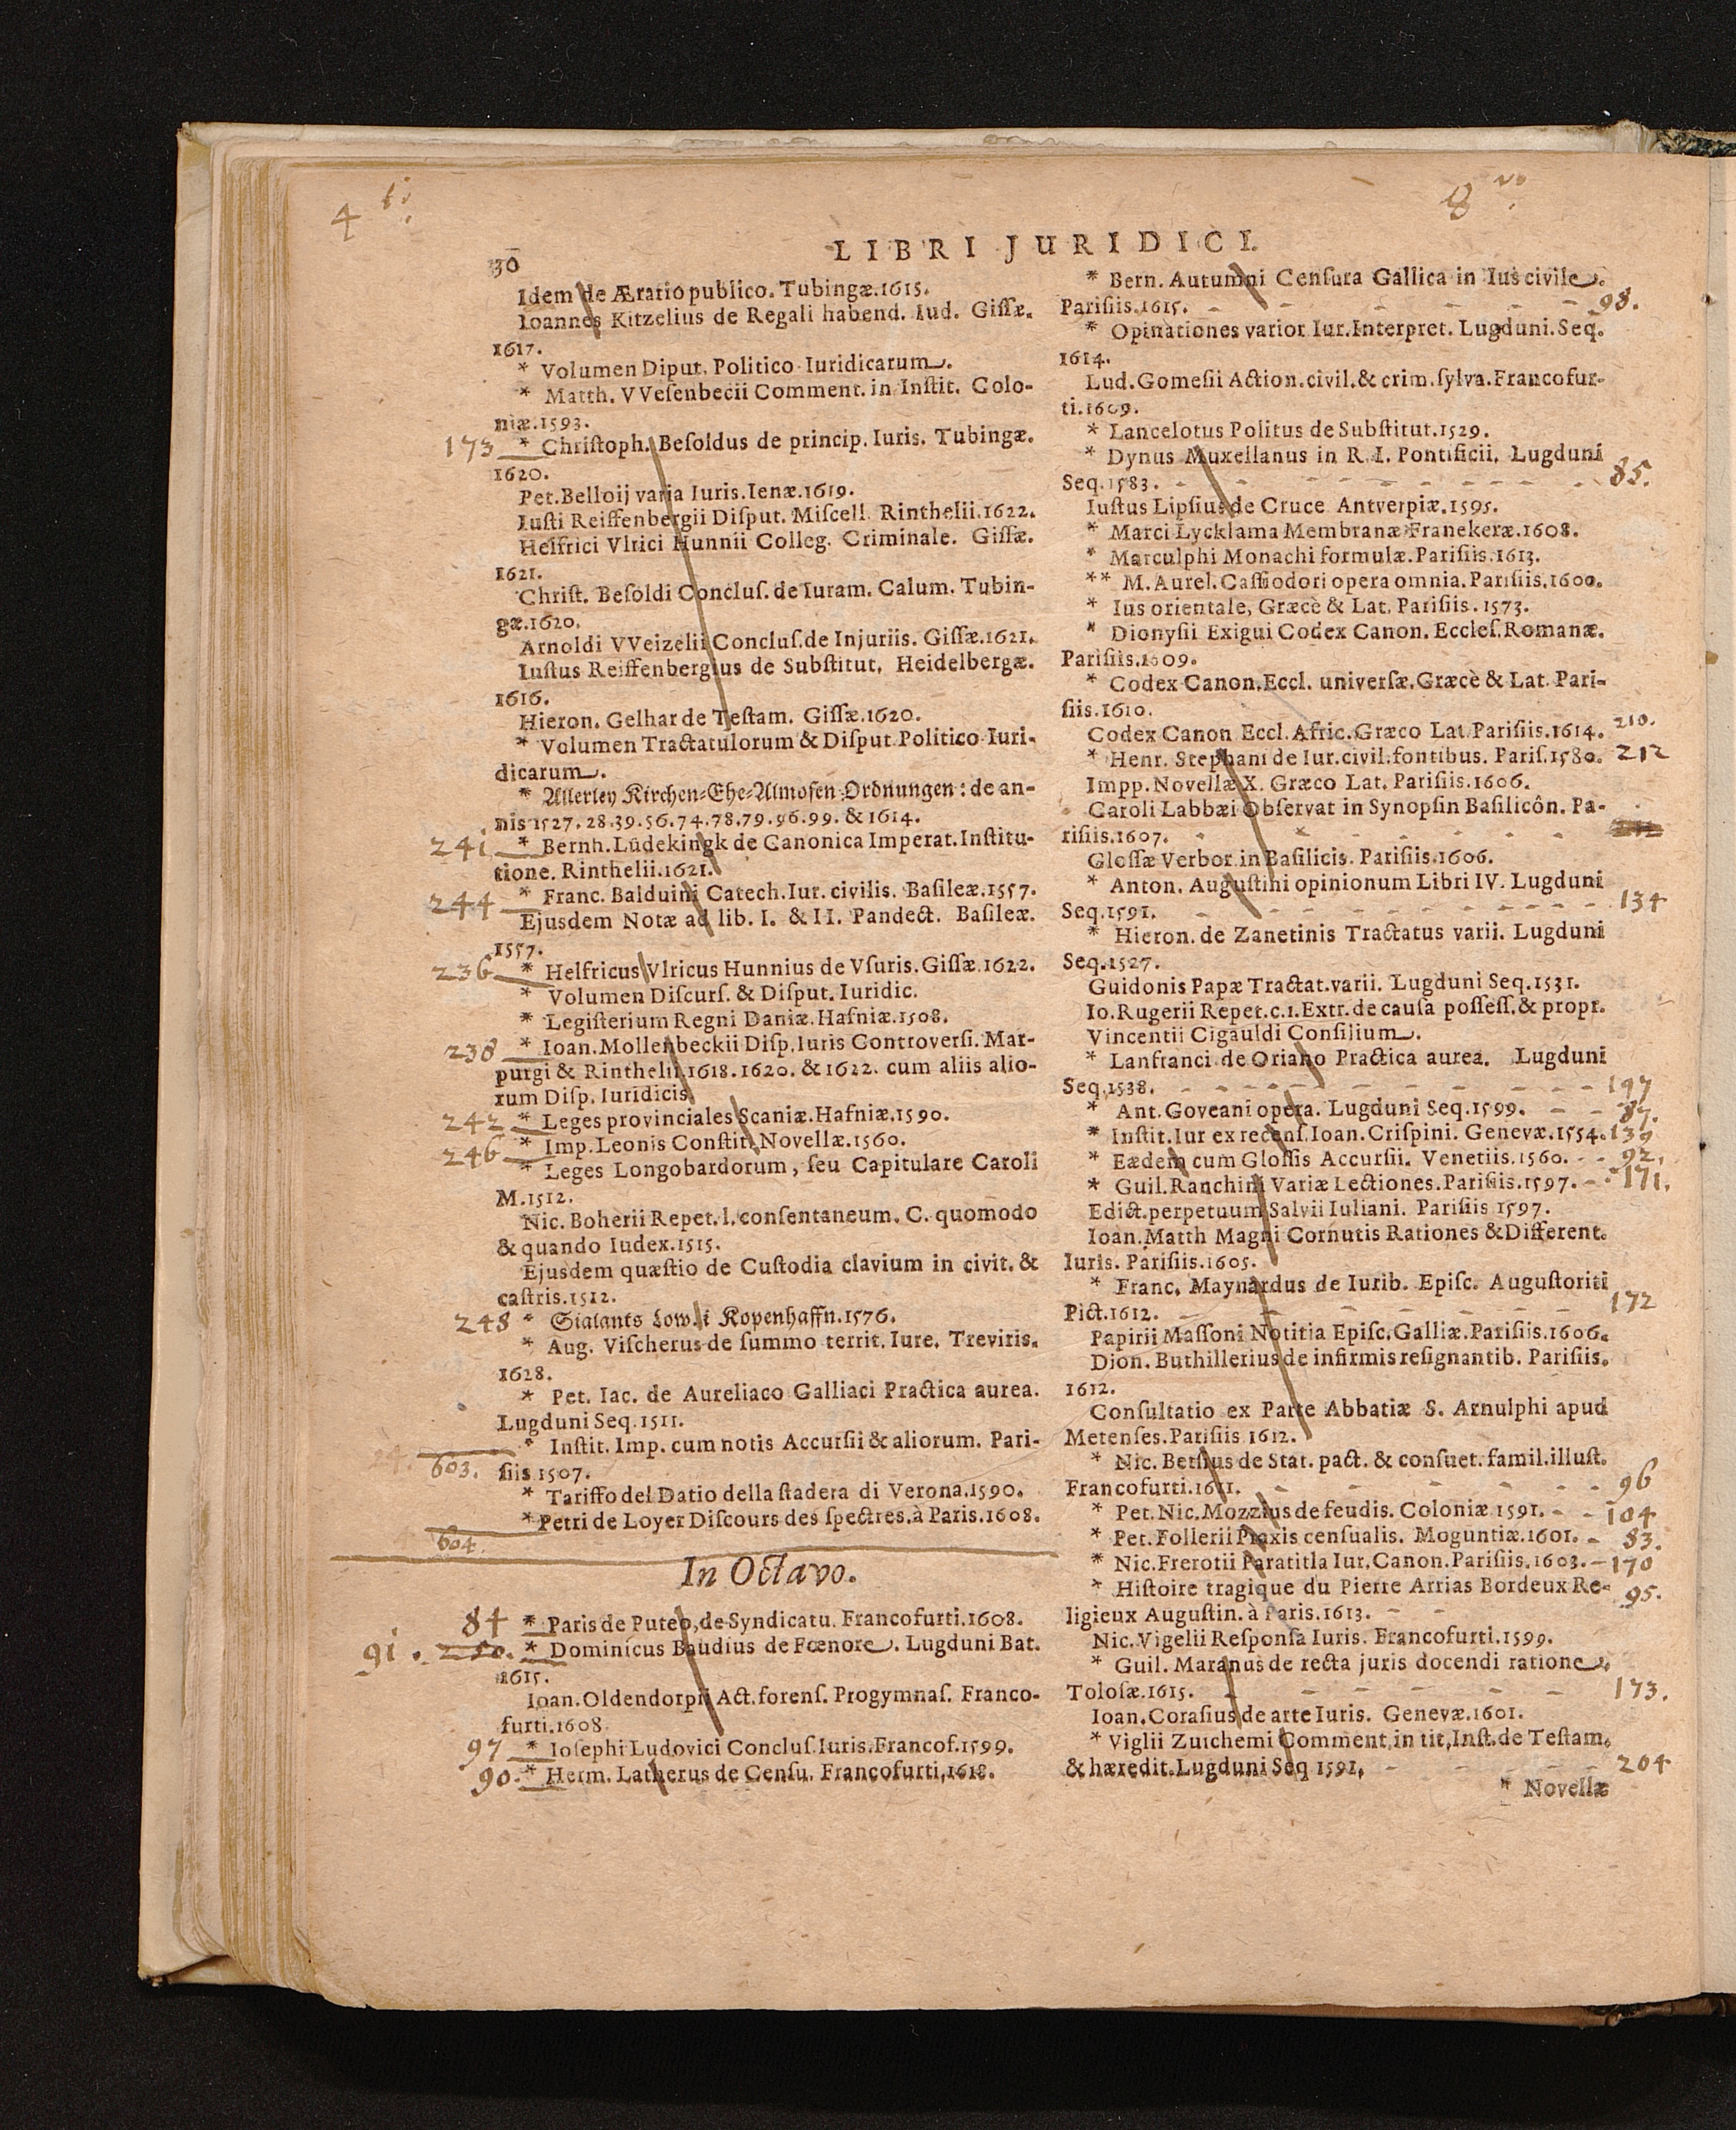 4 ti.
8 vo.
30
LIBRI JURIDICI.
Idem de Ærario publico. Tubingæ.1615.
Ioannes Kitzelius de Regali habend. Iud. Giſſæ.
1617.
* Volumen Diput. Politico Iuridicarum.
* Matth. VVeſenbecii Comment. in Inſtit. Colo-
niæ.1593.
173 * Chriſtoph. Beſoldus de princip. Iuris. Tubingæ.
1620.
Pet. Belloij varia Iuris. Ienæ.1619.
Iuſti Reiffenbergii Diſput. Miſcell. Rinthelii.1622.
Helfrici Vlrici Hunnii Colleg. Criminale. Giſſæ.
1621.
Chriſt. Beſoldi Concluſ. de Iuram. Calum. Tubin-
gæ.1620.
Arnoldi VVeizelii Concluſ. de Injuriis. Giſſæ.1621.
Iuſtus Reiffenbergius de Subſtitut. Heidelbergæ.
1616.
Hieron. Gelhar de Teſtam. Giſſæ.1620.
* Volumen Tractatulorum & Diſput. Politico Iuri-
dicarum.
* Allerley Kirchen-Ehe-Almoſen Ordnungen: de an-
nis 1527. 28.39.56.74.78.79.96.99. & 1614.
241 * Bernh. Lüdekingk de Canonica Imperat. Inſtitu-
tione. Rinthelii.1621.
244 * Franc. Balduini Catech. Iur. civilis. Baſileæ.1557.
Ejusdem Notæ ad lib. I. & II. Pandect. Baſileæ.
1557.
236 * Helfricus Vlricus Hunnius de Vſuris. Giſſæ.1622.
* Volumen Diſcurſ. & Diſput. Iuridic.
* Legiſterium Regni Daniæ. Hafniæ.1508.
238 * Ioan. Mollenbeckii Diſp. Iuris Controverſi. Mar-
purgi & Rinthelii 1618.1620. & 1622. cum aliis alio-
rum Diſp. Iuridicis.
242 * Leges provinciales Scaniæ. Hafniæ.1590.
246 * Imp. Leonis Conſtit. Novellæ.1560.
* Leges Longobardorum, ſeu Capitulare Caroli
M.1512.
Nic. Boherii Repet. l. conſentaneum. C. quomodo
& quando Iudex.1515.
Ejusdem quæſtio de Cuſtodia clavium in civit. &
caſtris.1512.
248 * Sialants Kopenhaffn.1576.
* Aug. Viſcherus de ſummo territ. Iure. Treviris.
1628.
* Pet. Iac. de Aureliaco Galliaci Practica aurea.
Lugduni Seq.1511.
* Inſtit. Imp. cum notis Accurſii & aliorum. Pari-
603. ſiis 1507.
* Tariffo del Datio della ſtadera di Verona.1590.
* Petri de Loyer Diſcours des ſpectres, à Paris.1608.
604.
In Octavo.
84 * Paris de Puteo, de Syndicatu. Francofurti.1608.
91. * Dominicus Baudius de Fœnore. Lugduni Bat.
1615.
Ioan. Oldendorpii Act. forenſ. Progymnaſ. Franco-
furti.1608.
97 * Ioſephi Ludovici Concluſ. Iuris. Francof.1599.
90. * Herm. Latherus de Cenſu. Francofurti,1618.
* Bern. Autumni Cenſura Gallica in Ius civile.
Pariſiis.1615. - - - 98.
* Opinationes varior. Iur. Interpret. Lugduni. Seq.
1614.
Lud. Gomeſii Action. civil. & crim. ſylva. Francofur-
ti.1609.
* Lancelotus Politus de Subſtitut.1529.
* Dynus Muxellanus in R. I. Pontificii. Lugduni
Seq.1583. - - - 85.
Iuſtus Lipſius de Cruce Antverpiæ.1595.
* Marci Lycklama Membranæ Franekeræ.1608.
* Marculphi Monachi formulæ. Pariſiis.1613.
** M. Aurel. Caſſiodori opera omnia. Pariſiis.1600.
* Ius orientale, Græcè & Lat. Pariſiis.1573.
* Dionyſii Exigui Codex Canon. Eccleſ. Romanæ.
Pariſiis.1609.
* Codex Canon. Eccl. univerſæ. Græcè & Lat. Pari-
ſiis.1610.
Codex Canon Eccl. Afric. Græco Lat Pariſiis.1614. 210.
* Henr. Stephani de Iur. civil. fontibus. Pariſ.1580. 212
Impp. Novellæ X. Græco Lat. Pariſiis.1606.
Caroli Labbæi Obſervat in Synopſin Baſilicôn. Pa-
riſiis.1607. - - -
Gloſſæ Verbor. in Baſilicis. Pariſiis.1606.
* Anton. Auguſtini opinionum Libri IV. Lugduni
Seq.1591. - - - 134
* Hieron. de Zanetinis Tractatus varii. Lugduni
Seq.1527.
Guidonis Papæ Tractat. varii. Lugduni Seq.1531.
Io. Rugerii Repet. c.1. Extr. de cauſa poſſeſſ. & propr.
Vincentii Cigauldi Conſilium.
* Lanfranci de Oriano Practica aurea. Lugduni
Seq.1538. - - - 197
* Ant. Goveani opera. Lugduni Seq.1599. - - 87.
* Inſtit. Iur ex recenſ. Ioan. Criſpini. Genevæ.1554. 139
* Eædem cum Gloſſis Accurſii. Venetiis.1560. - - 92.
* Guil. Ranchini Variæ Lectiones. Pariſiis.1597. - 171.
Edict. perpetuum Salvii Iuliani. Pariſiis 1597.
Ioan. Matth Magni Cornutis Rationes & Different.
Iuris. Pariſiis.1605.
* Franc. Maynardus de Iurib. Epiſc. Auguſtoriti
Pict.1612. - - - 172
Papirii Maſſoni Notitia Epiſc. Galliæ. Pariſiis.1606.
Dion. Buthillerius de infirmis reſignantib. Pariſiis.
1612.
Conſultatio ex Parte Abbatiæ S. Arnulphi apud
Metenſes. Pariſiis 1612.
* Nic. Betſius de Stat. pact. & conſuet. famil. illuſt.
Francofurti.1611. - - - 96
* Pet. Nic. Mozzius de feudis. Coloniæ 1591. - - 104
* Pet. Follerii Praxis cenſualis. Moguntiæ.1601. - 83.
* Nic. Frerotii Paratitla Iur. Canon. Pariſiis.1603. - 170
* Hiſtoire tragique du Pierre Arrias Bordeux Re-
ligieux Auguſtin. à Paris.1613. - - 95.
Nic. Vigelii Reſponſa Iuris. Francofurti.1599.
* Guil. Maranus de recta juris docendi ratione.
Toloſæ.1615. - - - 173.
Ioan. Coraſius de arte Iuris. Genevæ.1601.
* Viglii Zuichemi Comment. in tit. Inſt. de Teſtam.
& hæredit. Lugduni Seq 1591. - - - 204
* Novellæ